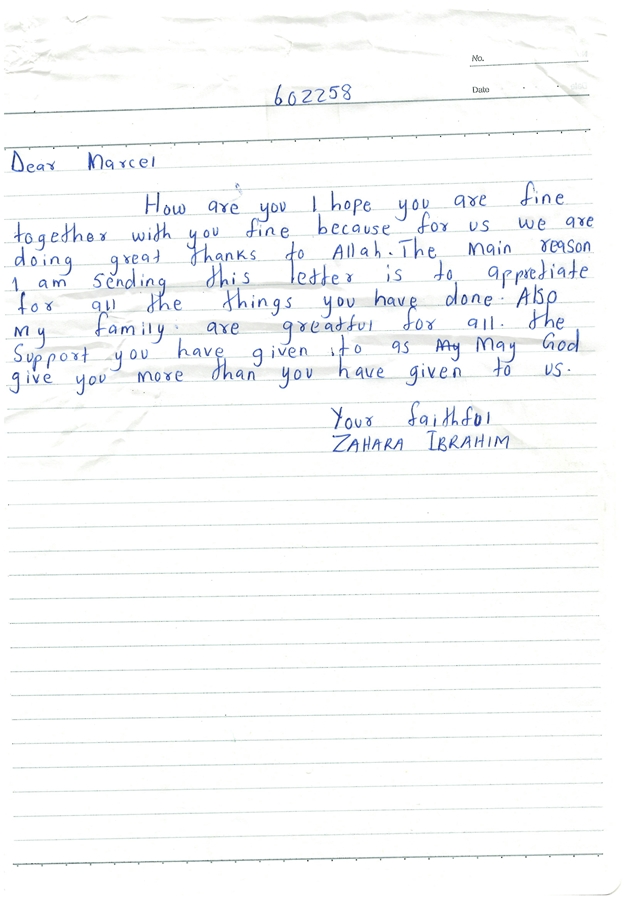 No.
602258
Date
Dear Marcel
How are you I hope you are fine
together with you fine because for us we are
doing great thanks to Allah. The main reason
I am sending this letter is to appretiate
for all the things you have done. Also
my family. are greatful for all. the
Support you have given to as My May God
give you more than you have given to us.
Your faithful
ZAHARA IBRAHIM